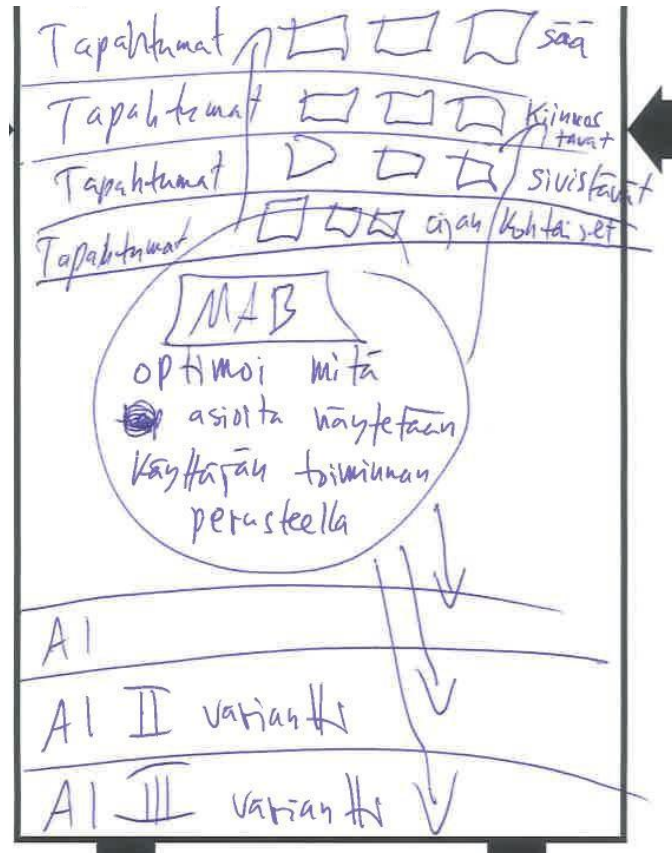 Tapahtumat sää
Tapahtumat Kiinnos
tavat
Tapahtumat sivistävät
Tapahtumat ajankohtaiset
MAB
optimoi mitä
asioita näytetään
käyttäjän toiminnan
perusteella
AI
AI II variantti
AI III variantti